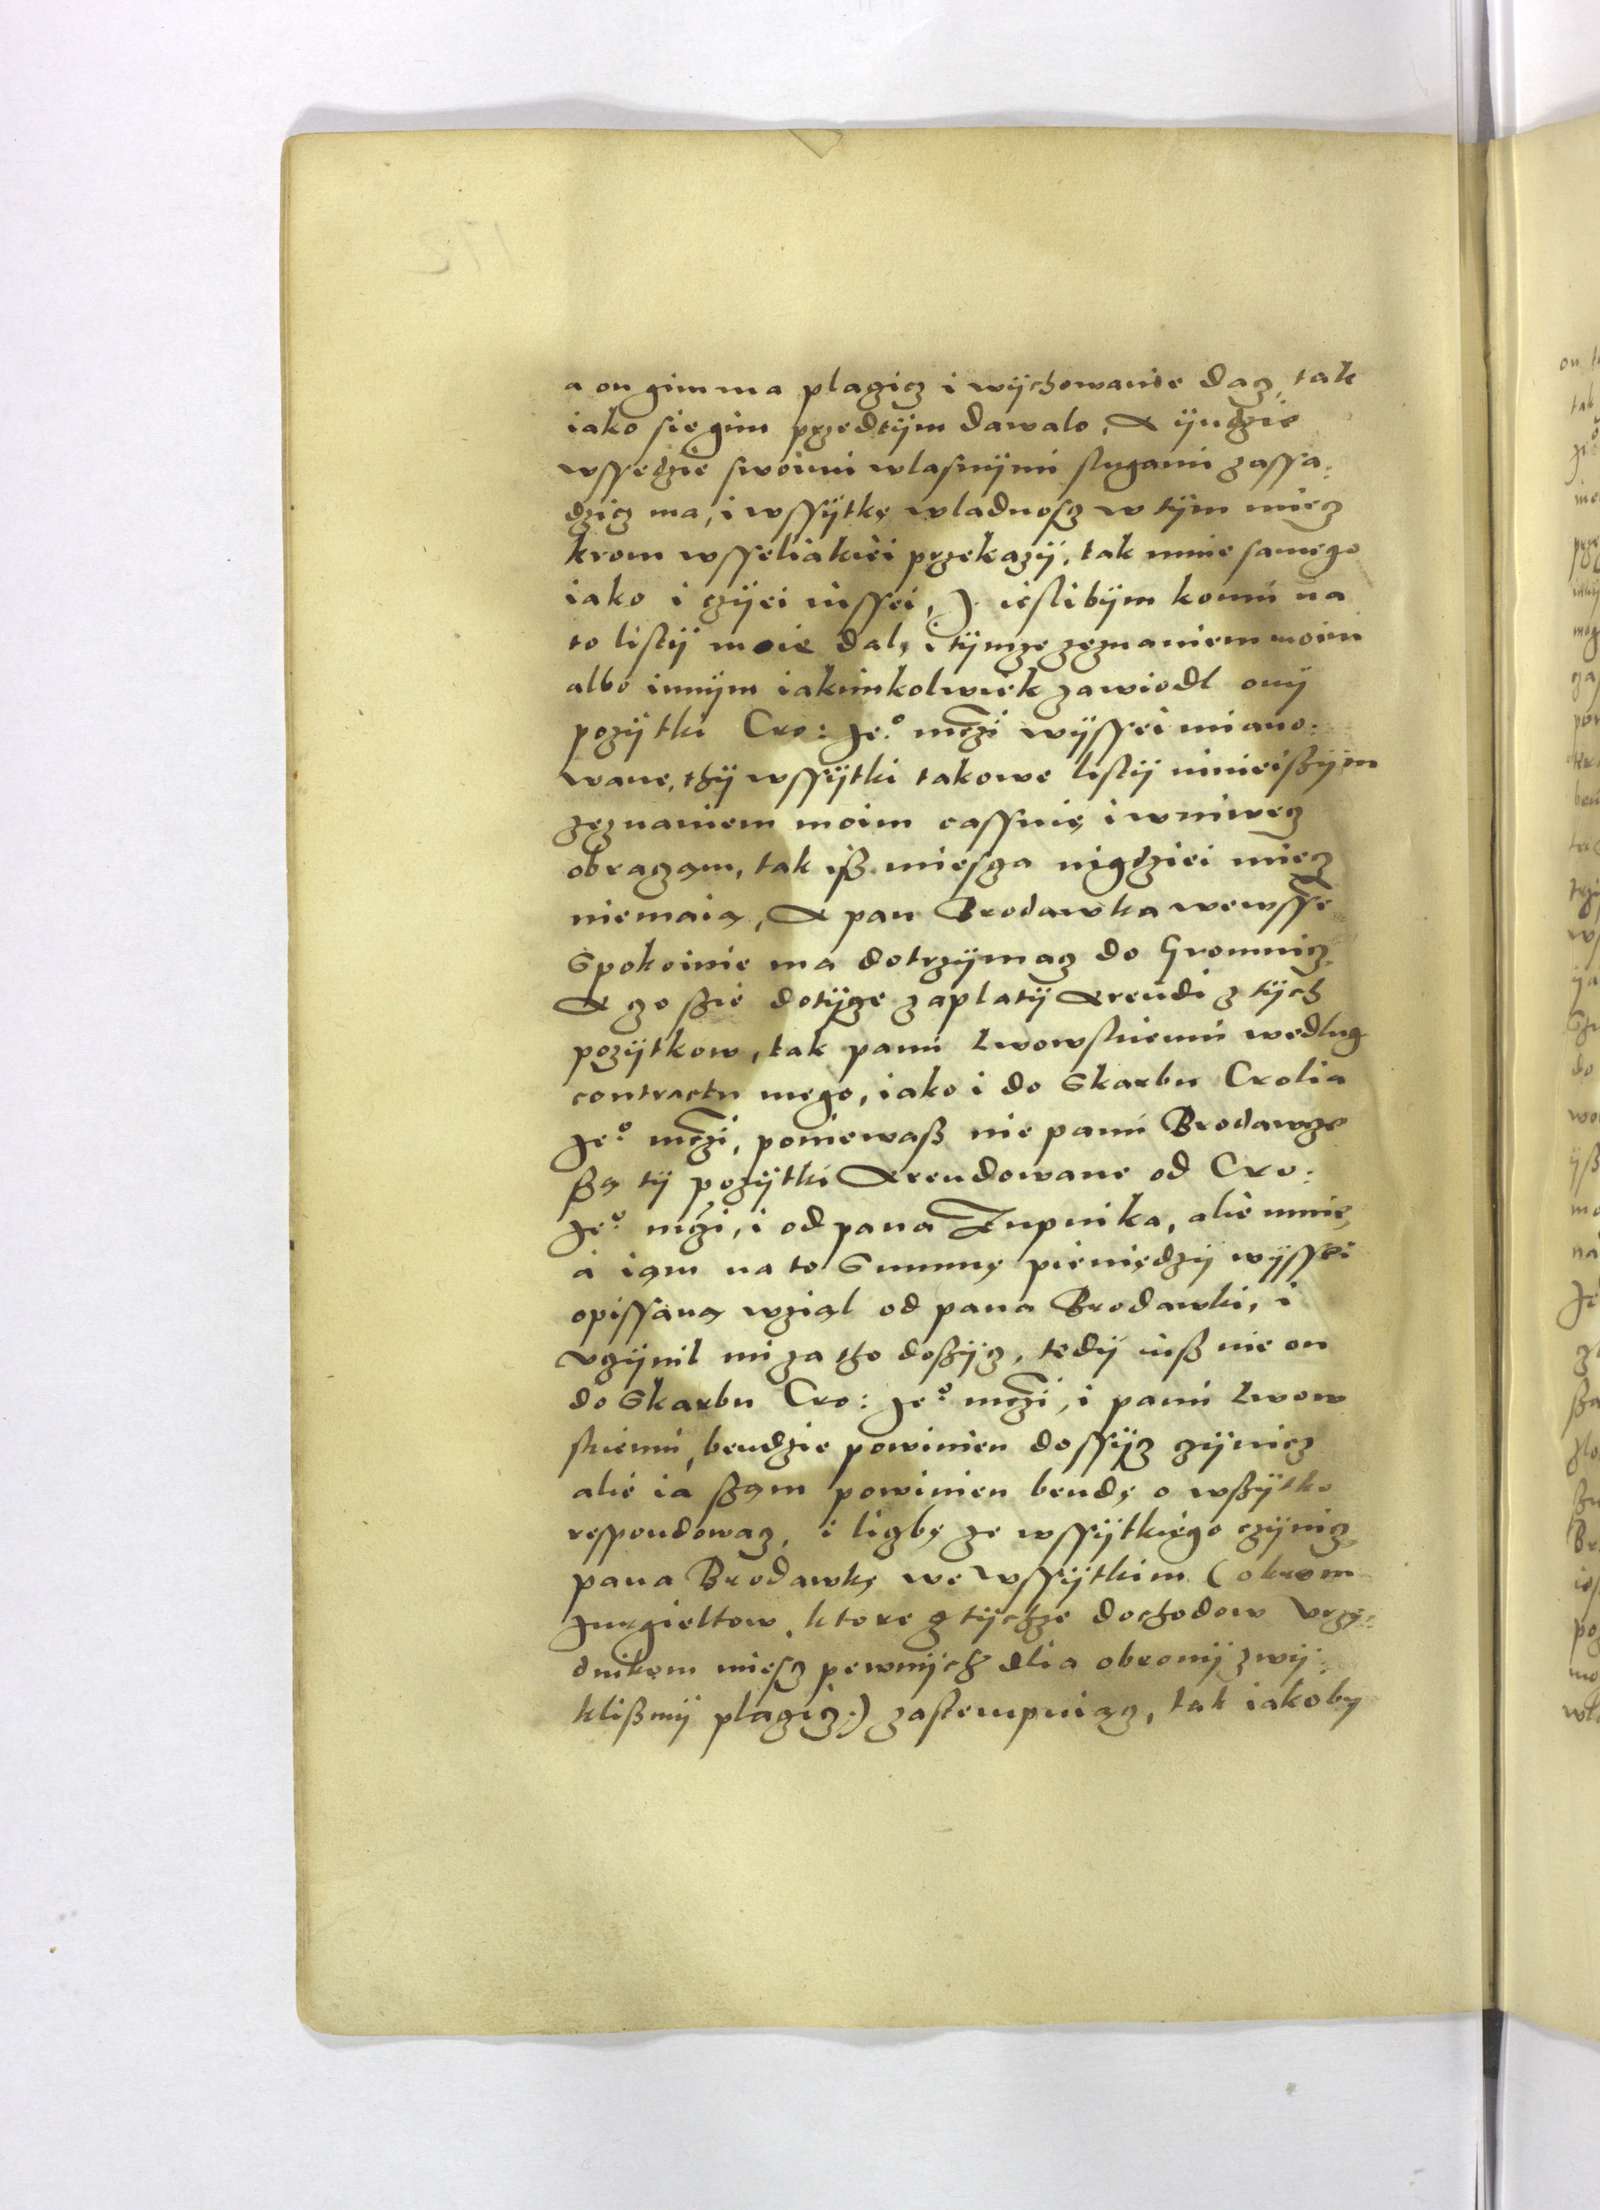 a on gim ma placzicz i wÿchowanie dacz, tak
iako sie gim przedtÿm dawalo, A ÿndzie
wssedzie swoimi wlasnÿmi slugami zassa:
dzicz ma, i wssÿtkę wladnoscz w tÿm miecz
krom wsseliakiei przekazÿ, tak mnie samego
iako i czÿei inssei, J iestibÿm komu na
to listÿ moie dal, i tÿmze zeznaniem moim
albo innÿm iakimkolwiek zawiodl onÿ
pozÿtki Cro: Je.º mczi wÿssei miano:
wane, thÿ wssÿtki takowe listÿ ninieiszÿm
zeznaniem moim cassuię i wniwecz
obraczam, tak isz miescza nigdziei miecz
niemaią, A pan Brodawka wewsse
Spokoinie ma dotrzÿmacz do Gromnicz.
A czo szie dotÿcze zaplatÿ Arendi z tÿch
pozÿtkow, tak panu Lwowskiemu wedlug
contractu mego, iako i do Skarbu Crolia
Je.º mczi, poniewasz nie panu Brodawcze
szą tÿ pozÿtki Arendowane od Cro:
Je.º mczi, i od pana Zupnika, alie mnie,
a iam na to Summę pieniędzÿ wÿssei
opissaną wziąl od pana Brodawki, i
vczÿnil mi za tho doszÿcz, tedÿ iusz nie on
do Skarbu Cro: Je.º mczi, i panu Lwow
skiemu, bendzie powinien dossÿcz czÿnicz
alie ia szam powinien bendę o wszÿtko
respondowacz, i liczbę ze wssÿtkiego czÿnicz,
pana Brodawkę we wssÿtkim (okrom
Jurgieltow, ktore z tÿchze dochodow Vrzę:
dnikom miescz pewnÿch dlia obronÿ zwÿ:
kliszmÿ placzicz) zastempuiącz, tak iakoby